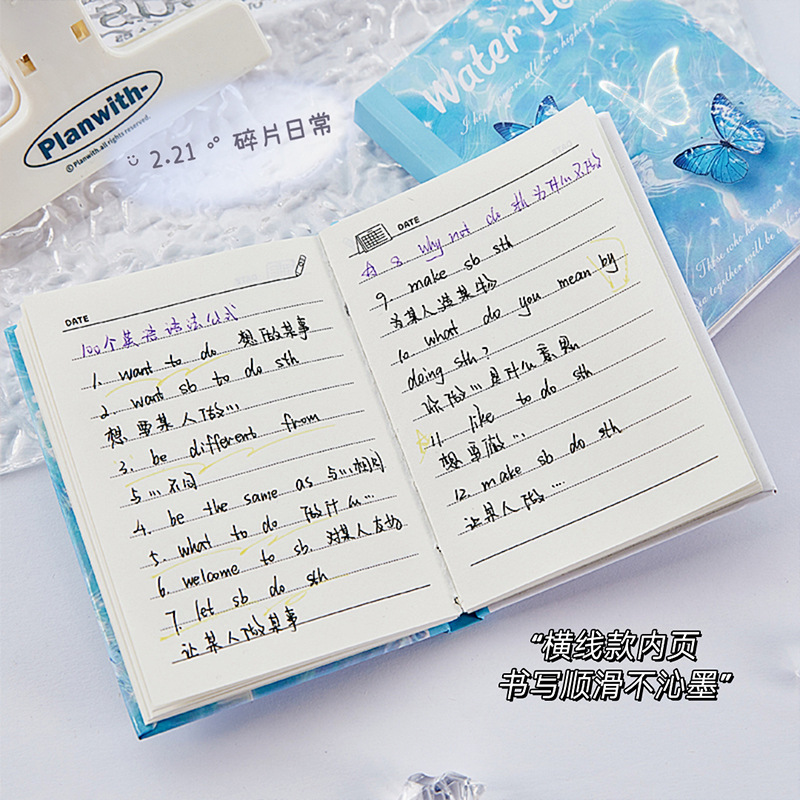 Planwith-
© Planwith.all rights reserved.
2.21 °° 碎片日常
Water
I
all on a higher
DATE
100个英语语法公式
1. want to do 想做某事
2. want sb to do sth
想要某人做...
3. be different from
与...不同
4. be the same as 与...相同
5. what to do 做什么...
6. welcome to sb. 对某人友好
7. let sb do sth
让某人做某事
DATE
8. why not do sth 为什么不做
9. make sb sth
为某人造某物
10. what do you mean by
doing sth?
你做...是什么意思
11. like to do sth
想要做...
12. make sb do sth
让某人做...
Those who have been
together will be
“横线款内页
书写顺滑不沁墨”